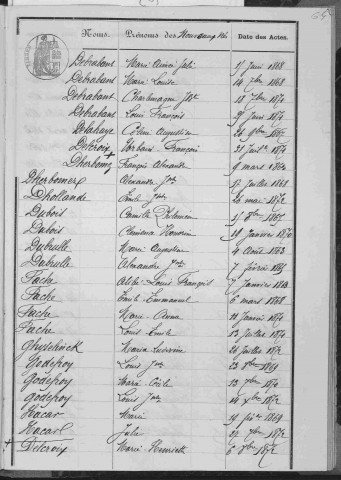 Noms. Prénoms des Nouveaux nés Date des Actes.
Debrabant Marie 17 Juin 1868
Debrabant Marie Louise 14 7bre 1868
Debrabant Charlemagne Jph 18 7bre 1870
Debrabant Louis François 29 Juin 1870
Delahaye Céline Augustine 26 9bre 1865
Delcroix Urbain François 21 Juillet 1870
Dherbomez François Alexandre 9 mars 1864
Dherbomez Alexandre Jph 17 Juillet 1868
Dhollande Emile Jph 20 mai 1872
Dubois Camille Philomène 17 8bre 1865
Dubois Clémence Honorine 19 Janvier 1872
Dubrulle Marie Augustine 4 Août 1863
Dubrulle Alexandre Jph 7 février 1865
Fache Louis François 7 Janvier
Fache Emile Emmanuel 6 mars 1868
Fache Marie Anna 10 Janvier 1870
Fache Louis Emile 13 Juillet 1870
Ghyselinck Maria 26 Juillet 1872
Godefroy Louis Jph 23 8bre 1869
Godefroy Marie Cécile 13 7bre 1870
Godefroy Louis Jph 14 1872
Hacar Marie 19 1869
Hacart Julie 27 7bre 1872
Delcroix Marie Henriette 6 8bre 1872